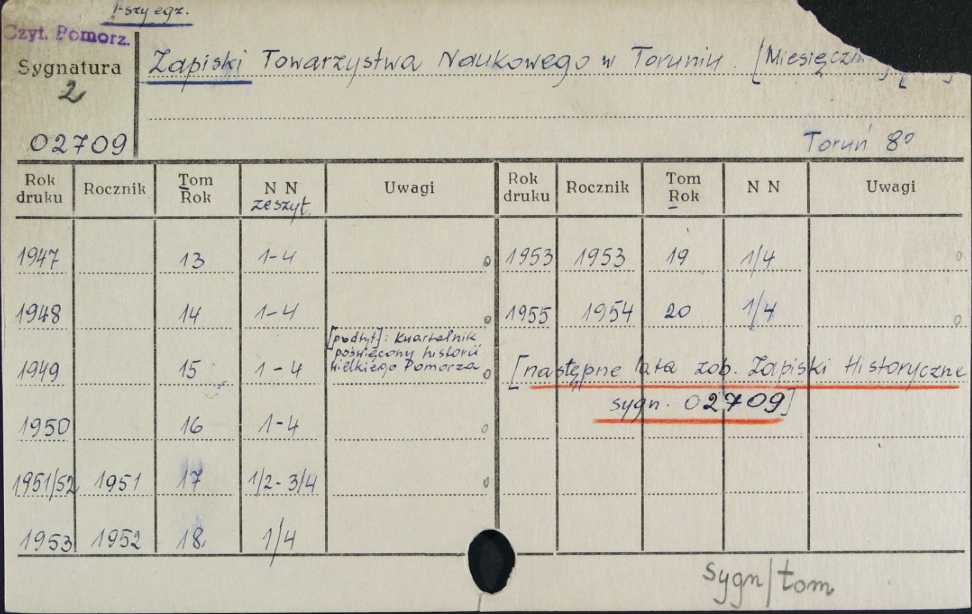 1-szy egz.
Czyt. Pomorz.
Sygnatura
2
02709
Zapiski Towarzystwa Naukowego w Toruniu. [Miesięczn
Toruń 8°
Rok druku Rocznik Tom Rok N N zeszyt. Uwagi Rok druku Rocznik Tom Rok N N Uwagi
1947 13 1-4 1953 1953 19 1/4
1948 14 1-4 1955 1954 20 1/4
[podtyt]: Kwartalnik
poświęcony historii
Wielkiego Pomorza
1949 15 1-4
[następne lata zob. Zapiski Historyczne
sygn. 02709]
1950 16 1-4
1951/52 1951 17 1/2-3/4
1953 1952 18. 1/4
sygn/tom